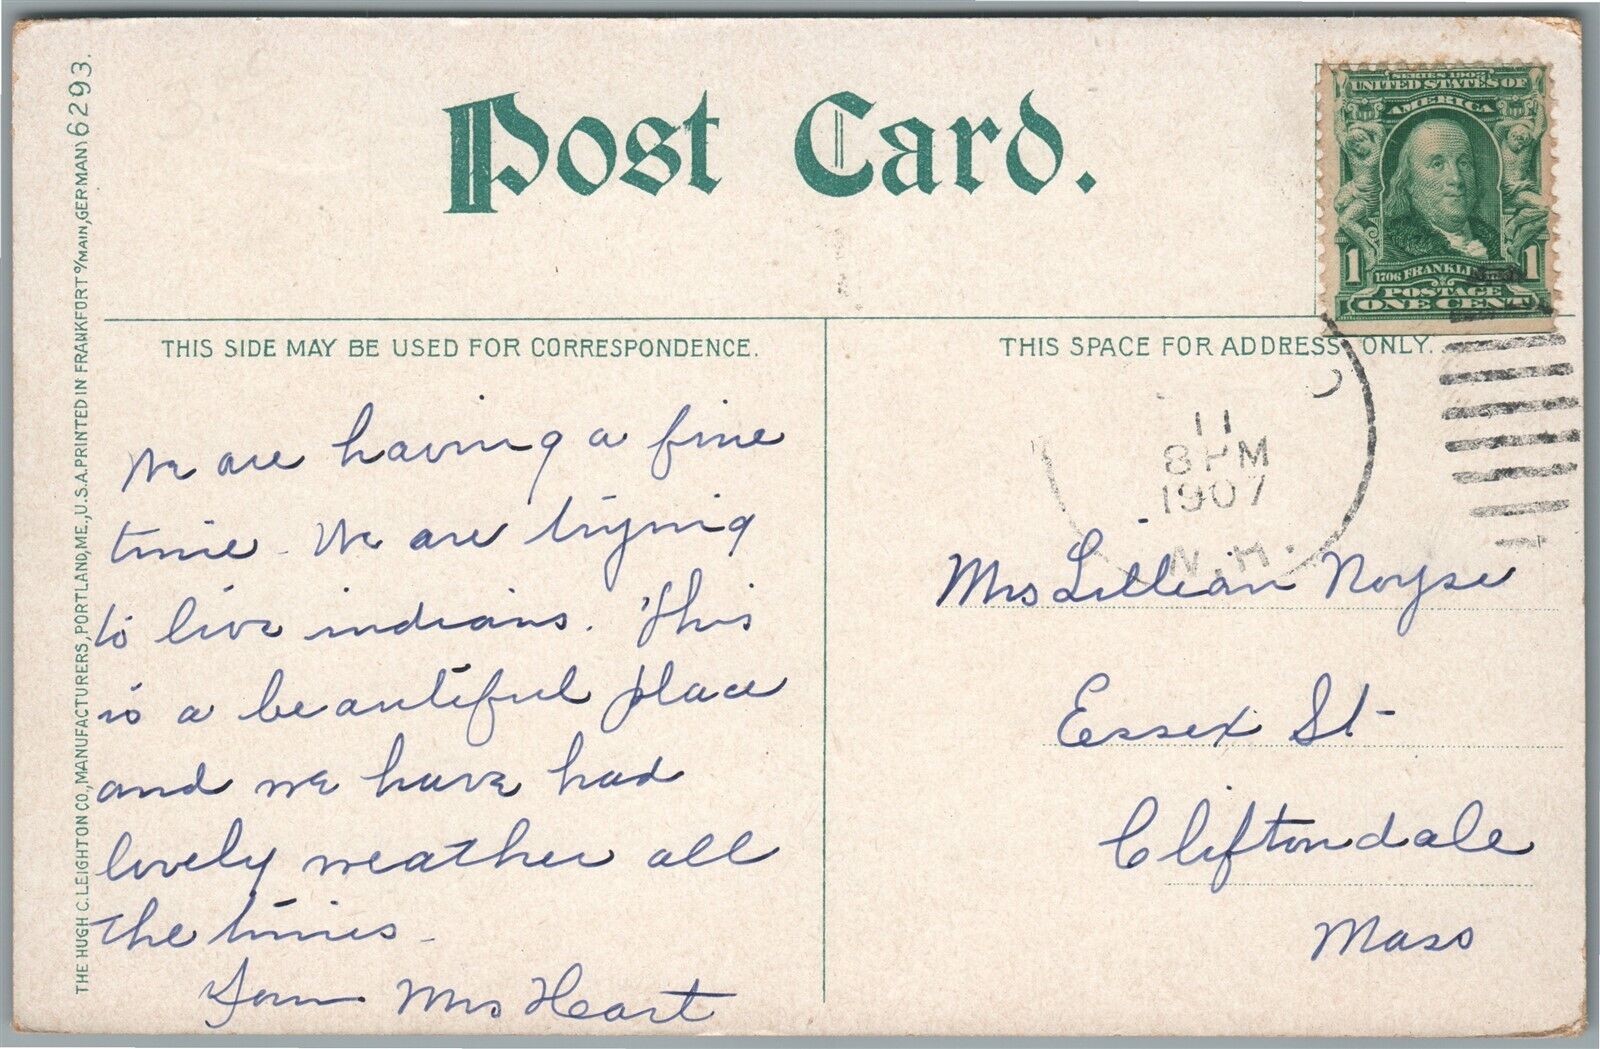 Post Card.
SERIES 1902
UNITED STATES OF
AMERICA
1 1
1706 FRANKLIN
POSTAGE
ONE CENT
THIS SIDE MAY BE USED FOR CORRESPONDENCE.
THIS SPACE FOR ADDRESS ONLY.
11
8 PM
1907
N.H.
We are having a fine
time - We are trying
to live indians. This
is a beautiful place
and we have had
lovely weather all
the times -
From Mrs Heart
Mrs Lillian Noyse
Essex St-
Cliftondale
Mass
THE HUGH C. LEIGHTON CO., MANUFACTURERS, PORTLAND, ME., U.S.A. PRINTED IN FRANKFORT o/MAIN, GERMANY 6293.